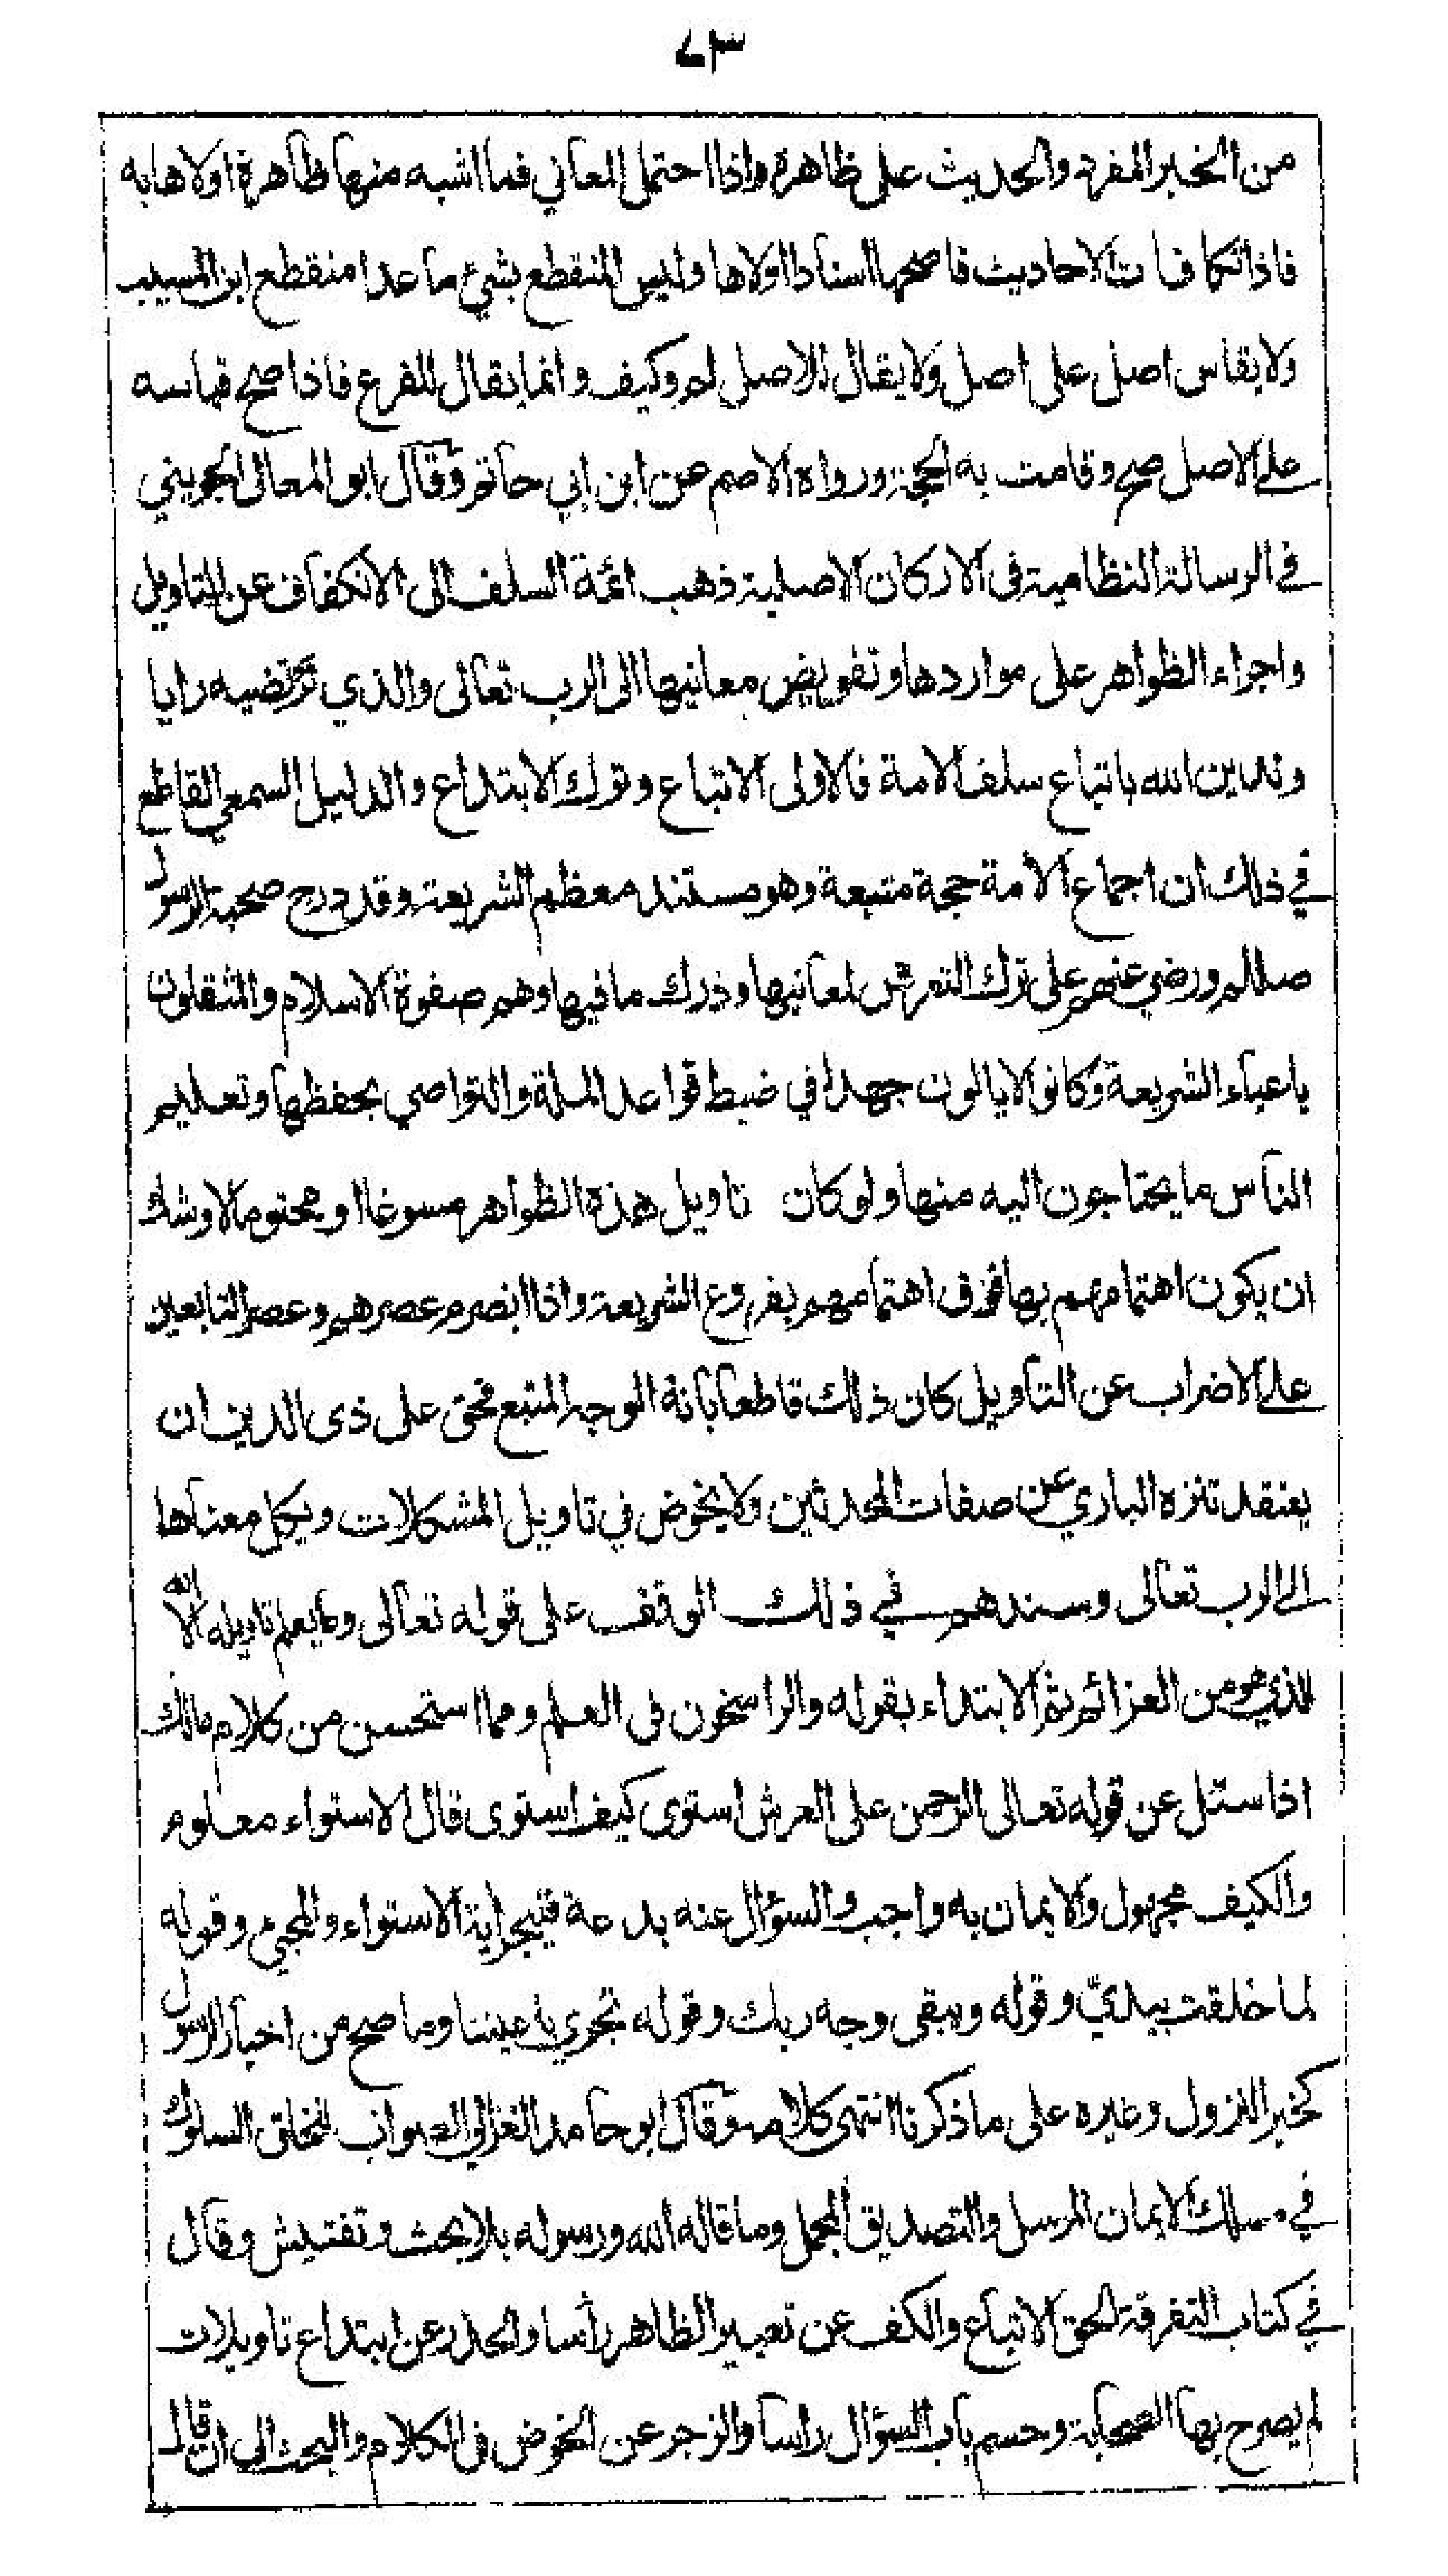 ٧٣
من الخبر المفرد والحديث على ظاهره واذا احتمل المعاني فما اشبه منها ظاهرة اولاها به
فاذا تكافات الاحاديث فاصحها اسنادا اولاها وليس المنقطع بشيء ما عدا منقطع ابن المسيب
ولا يقاس اصل على اصل ولا يقال للاصل لم وكيف وانما يقال للفرع فاذا صح قياسه
على الاصل صح وقامت به الحجة ورواه الاصم عن ابن ابي حاتم وقال ابو المعالي الجويني
في الرسالة النظامية في الاركان الاصلية ذهب ائمة السلف الى الانكفاف عن التاويل
واجراء الظواهر على مواردها وتفويض معانيها الى الرب تعالى والذي نرتضيه رايا
وندين الله باتباع سلف الامة فالاولى الاتباع وترك الابتداع والدليل السمعي القاطع
في ذلك ان اجماع الامة حجة متبعة وهو مستند معظم الشريعة وقد درج صحبة الرسول
صللم ورضي عنهم على ترك التعرض لمعانيها ودرك ما فيها وهم صفوة الاسلام والمثقلون
باعباء الشريعة وكانوا لا يالون جهدا في ضبط قواعد الملة والتواصي بحفظها وتعليم
الناس ما يحتاجون اليه منها ولو كان تاويل هذه الظواهر مسوغا او محتوما لاوشك
ان يكون اهتمامهم بها فوق اهتمامهم بفروع الشريعة واذا انصرم عصرهم وعصر التابعين
على الاضراب عن التاويل كان ذلك قاطعا بانه الوجه المتبع فحق على ذى الدين ان
يعتقد تنزه الباري عن صفات المحدثين ولا يخوض في تاويل المشكلات ويكل معناها
الى الرب تعالى وسندهم في ذلك الوقف على قوله تعالى وما يعلم تاويله الا الله
الذي هو من العزائم ثم الابتداء بقوله والراسخون فى العلم ومما استحسن من كلام مالك
اذا سئل عن قوله تعالى الرحمن على العرش استوى كيف استوى قال الاستواء معلوم
والكيف مجهول والايمان به واجب والسؤال عنه بدعة فتجر اية الاستواء والمجيء وقوله
لما خلقت بيديّ وقوله ويبقى وجه ربك وقوله تجري باعيننا وما صح من اخبار الرسول
كخبر النزول وغيره على ما ذكرنا انتهى كلامه وقال ابو حامد الغزالي الصواب للخلق السلوك
في مسلك الايمان المرسل والتصديق المجمل وما قاله الله ورسوله بلا بحث وتفتيش وقال
في كتاب التفرقة الحق الاتباع والكف عن تعبير الظاهر رأسا والحذر عن ابتداع تاويلات
لم يصرح بها الصحابة وحسم باب السؤال راسا والزجر عن الخوض فى الكلام والبحث الى ان قال